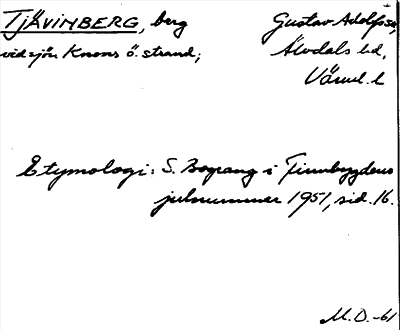 TJÄVINBERG, berg
vid sjön Knons ö. strand;
Gustav Adolfs sn,
Älvdals hd,
Värml. l
Etymologi: S. Bograng i Finnbygdens
julnummer 1951, sid. 16.
M.O.-61